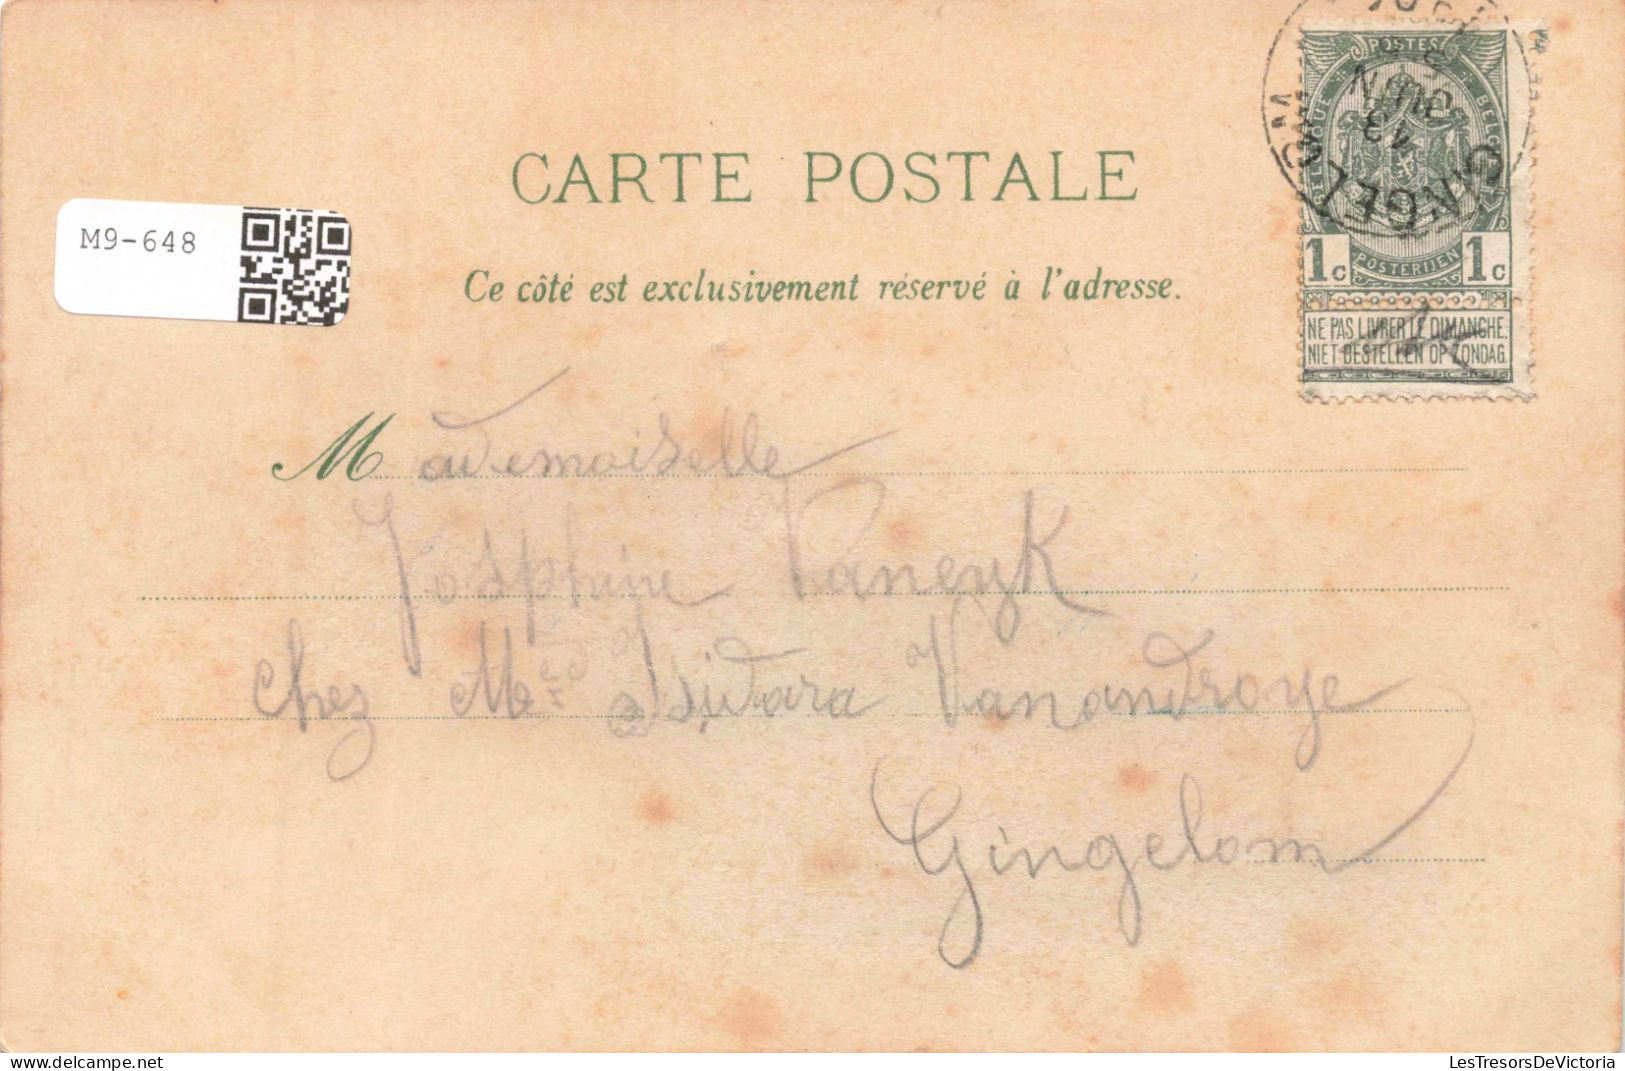 POSTES
BELGIQUE BELGIË
GINGELOM
13 JUIN
CARTE POSTALE
M9-648
1c 1c
POSTERIJEN
Ce côté est exclusivement réservé à l'adresse.
NE PAS LIVRER LE DIMANCHE.
NIET BESTELLEN OP ZONDAG.
Mademoiselle
Josphine Vaneyk
chez Mme Isidora Vanandroye
Gingelom
LesTresorsDeVictoria